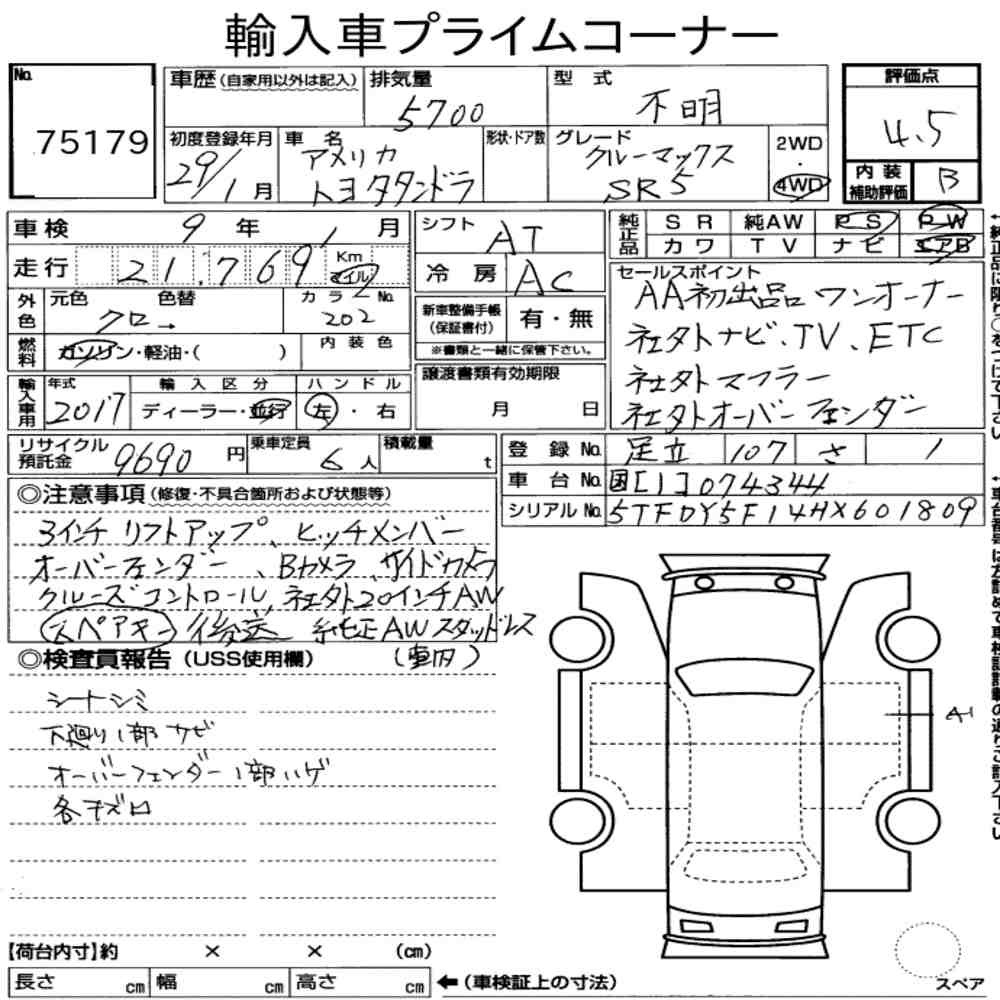 輸入車プライムコーナー
No. 75179
車歴 (自家用以外は記入)
排気量 5700
型式 不明
評価点 4.5
内装補助評価 B
初度登録年月 29/1月
車名 アメリカトヨタタンドラ
形状・ドア数
グレード クルーマックス SR5
2WD・4WD
車検 9年 1月
走行 21,769 Km マイル
シフト AT
冷房 AC
純正品 SR 純AW PS PW
カワ TV ナビ エアB
外色 元色 色替 クロ→ カラーNo. 202
燃料 ガソリン・軽油・( ) 内装色
新車整備手帳(保証書付) 有・無
※書類と一緒に保管下さい。
セールスポイント
AA初出品 ワンオーナー
社外ナビ、TV、ETC
社外マフラー
社外オーバーフェンダー
輸入車用 年式 2017 輸入区分 ディーラー・並行 ハンドル 左・右
譲渡書類有効期限 月 日
リサイクル預託金 9690円 乗車定員 6人 積載量 t
登録No. 足立 107 さ 1
車台No. 国[1]074344
シリアルNo. 5TFDY5F14HX601809
◎注意事項 (修復・不具合箇所および状態等)
3インチリフトアップ、ヒッチメンバー
オーバーフェンダー、Bカメラ、サイドカメラ
クルーズコントロール、社外20インチAW
スペアキー後送 純正AWスタッドレス
(車内)
◎検査員報告 (USS使用欄)
シートシミ
下廻り1部サビ
オーバーフェンダー1部ハゲ
各キズ
A1
【荷台内寸】約 × × (cm)
長さ cm 幅 cm 高さ cm ←(車検証上の寸法)
スペア